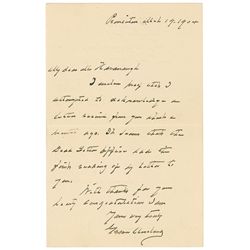 Princeton March 19. 1904
My dear Mr Kavanaugh
I enclose
attempted to acknowledge a
letter received from you about a
month ago. It seems that the
Dead Letter Office had the
sending my letter to
you.
With thanks for your
hearty congratulations I am
Yours very truly
Grover Cleveland